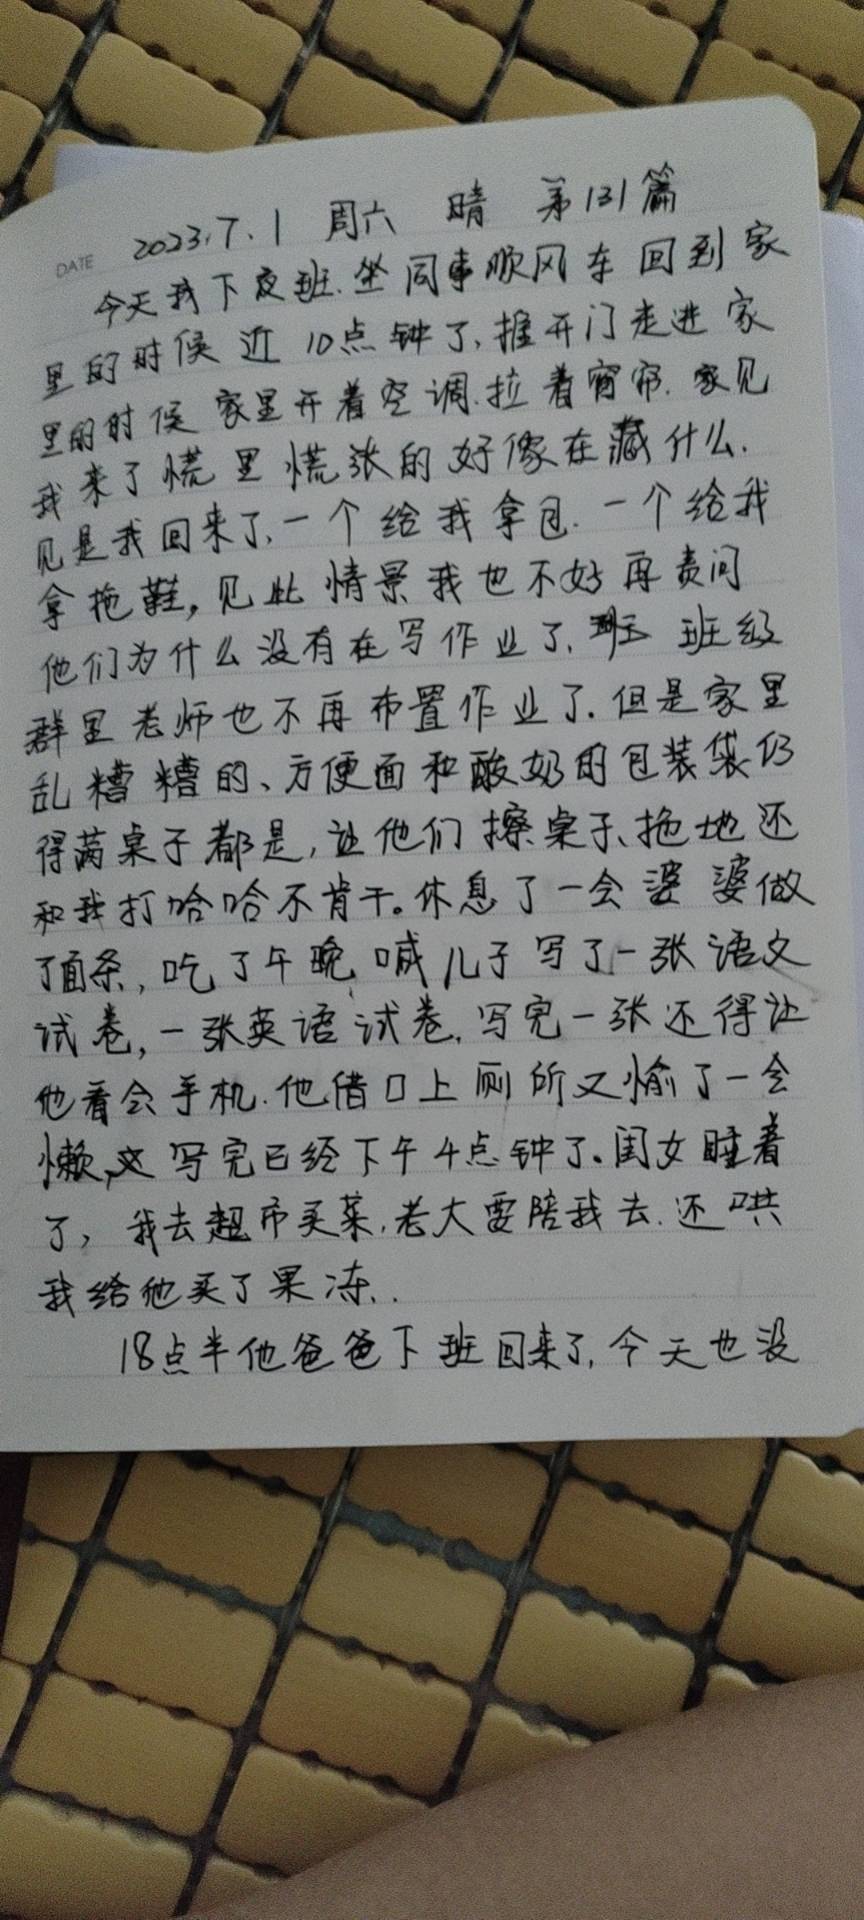 2023.7.1 周六 晴 第131篇
DATE
今天我下夜班.坐同事顺风车回到家
里的时候近10点钟了,推开门走进家
里的时候家里开着空调.拉着窗帘.家见
我来了慌里慌张的好像在藏什么.
见是我回来了,一个给我拿包.一个给我
拿拖鞋,见此情景我也不好再责问
他们为什么没有在写作业了, 班级
群里老师也不再布置作业了.但是家里
乱糟糟的、方便面和酸奶的包装袋仍
得满桌子都是,让他们擦桌子、拖地还
和我打哈哈不肯干。休息了一会婆婆做
了面条,吃了午晚喊儿子写了一张语文
试卷,一张英语试卷,写完一张还得让
他看会手机.他借口上厕所又偷了一会
懒,这写完已经下午4点钟了。闺女睡着
了,我去超市买菜,老大要陪我去.还哄
我给他买了果冻..
18点半他爸爸下班回来了,今天也没